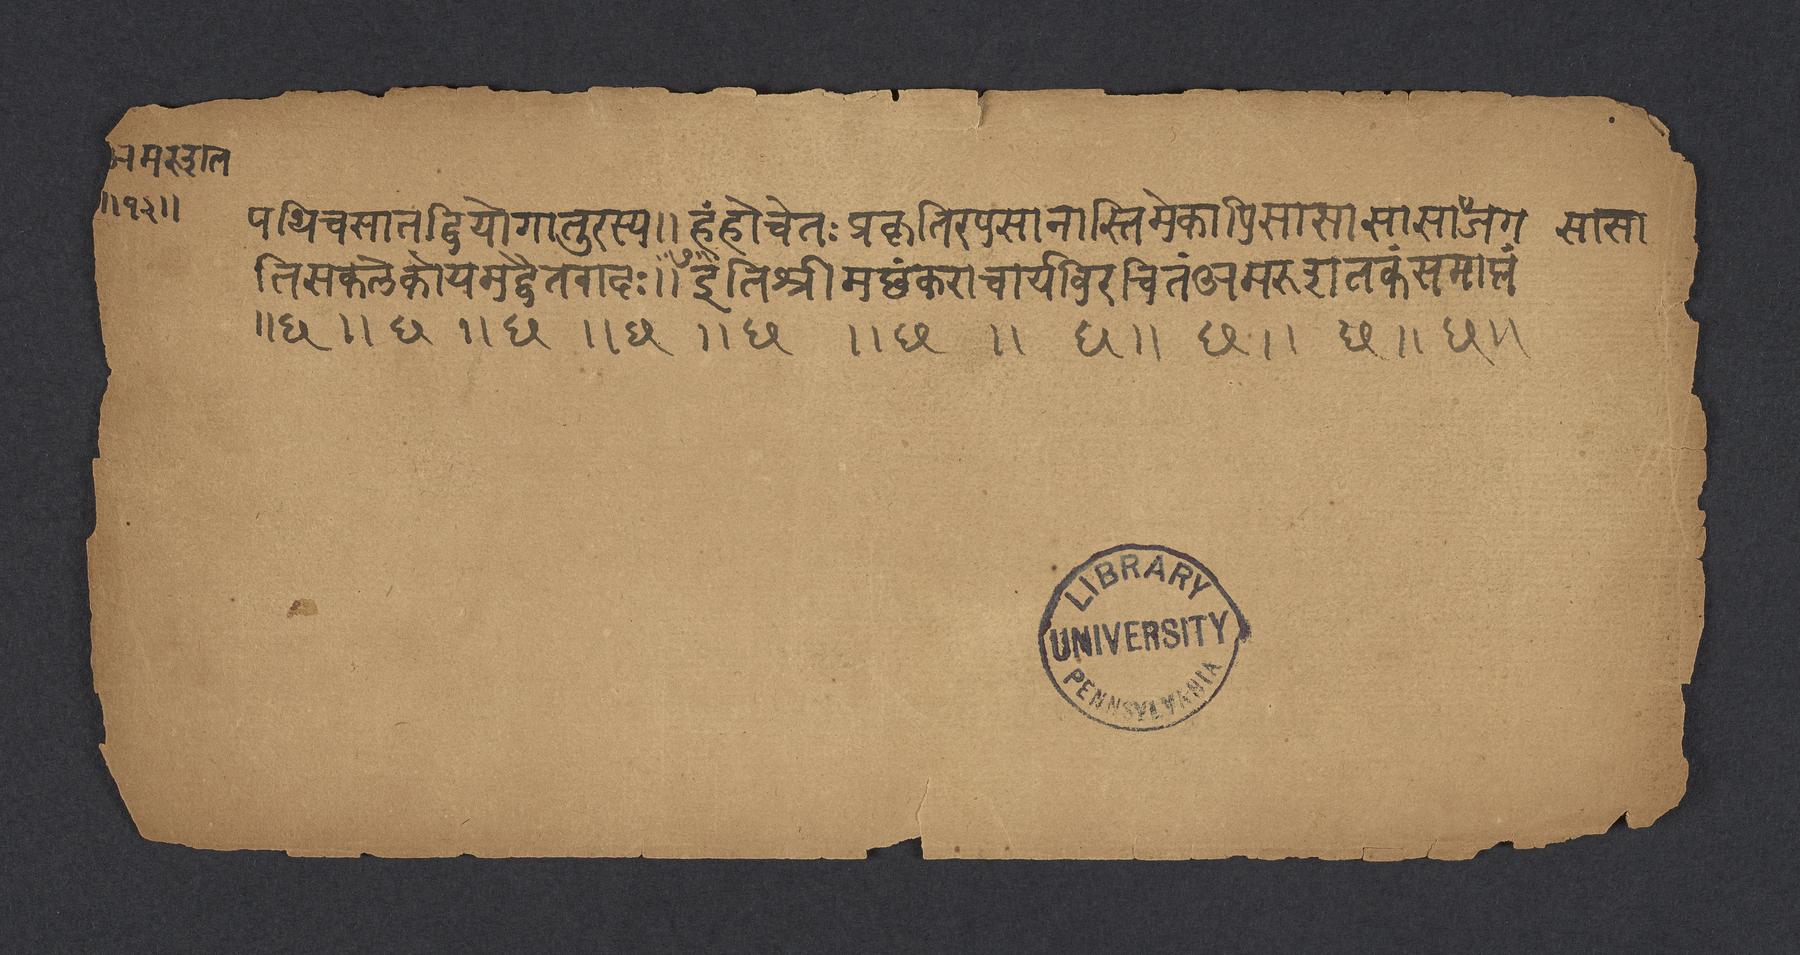 अमरुशत
॥१२॥
पथिचसातद्वियोगातुरस्य॥ हंहोचेतः प्रकृतिरपरानास्तिमेकापिसासासासासाजग सासा
तिसकलेकोयमद्वैतवादः॥ इतिश्रीमछंकराचार्यविरचितंअमरुशतकंसमाप्तं
॥छ॥ छ॥ छ॥ छ॥ छ॥ छ॥ छ॥ छ॥ छ॥ छ॥
LIBRARY
UNIVERSITY
PENNSYLVANIA